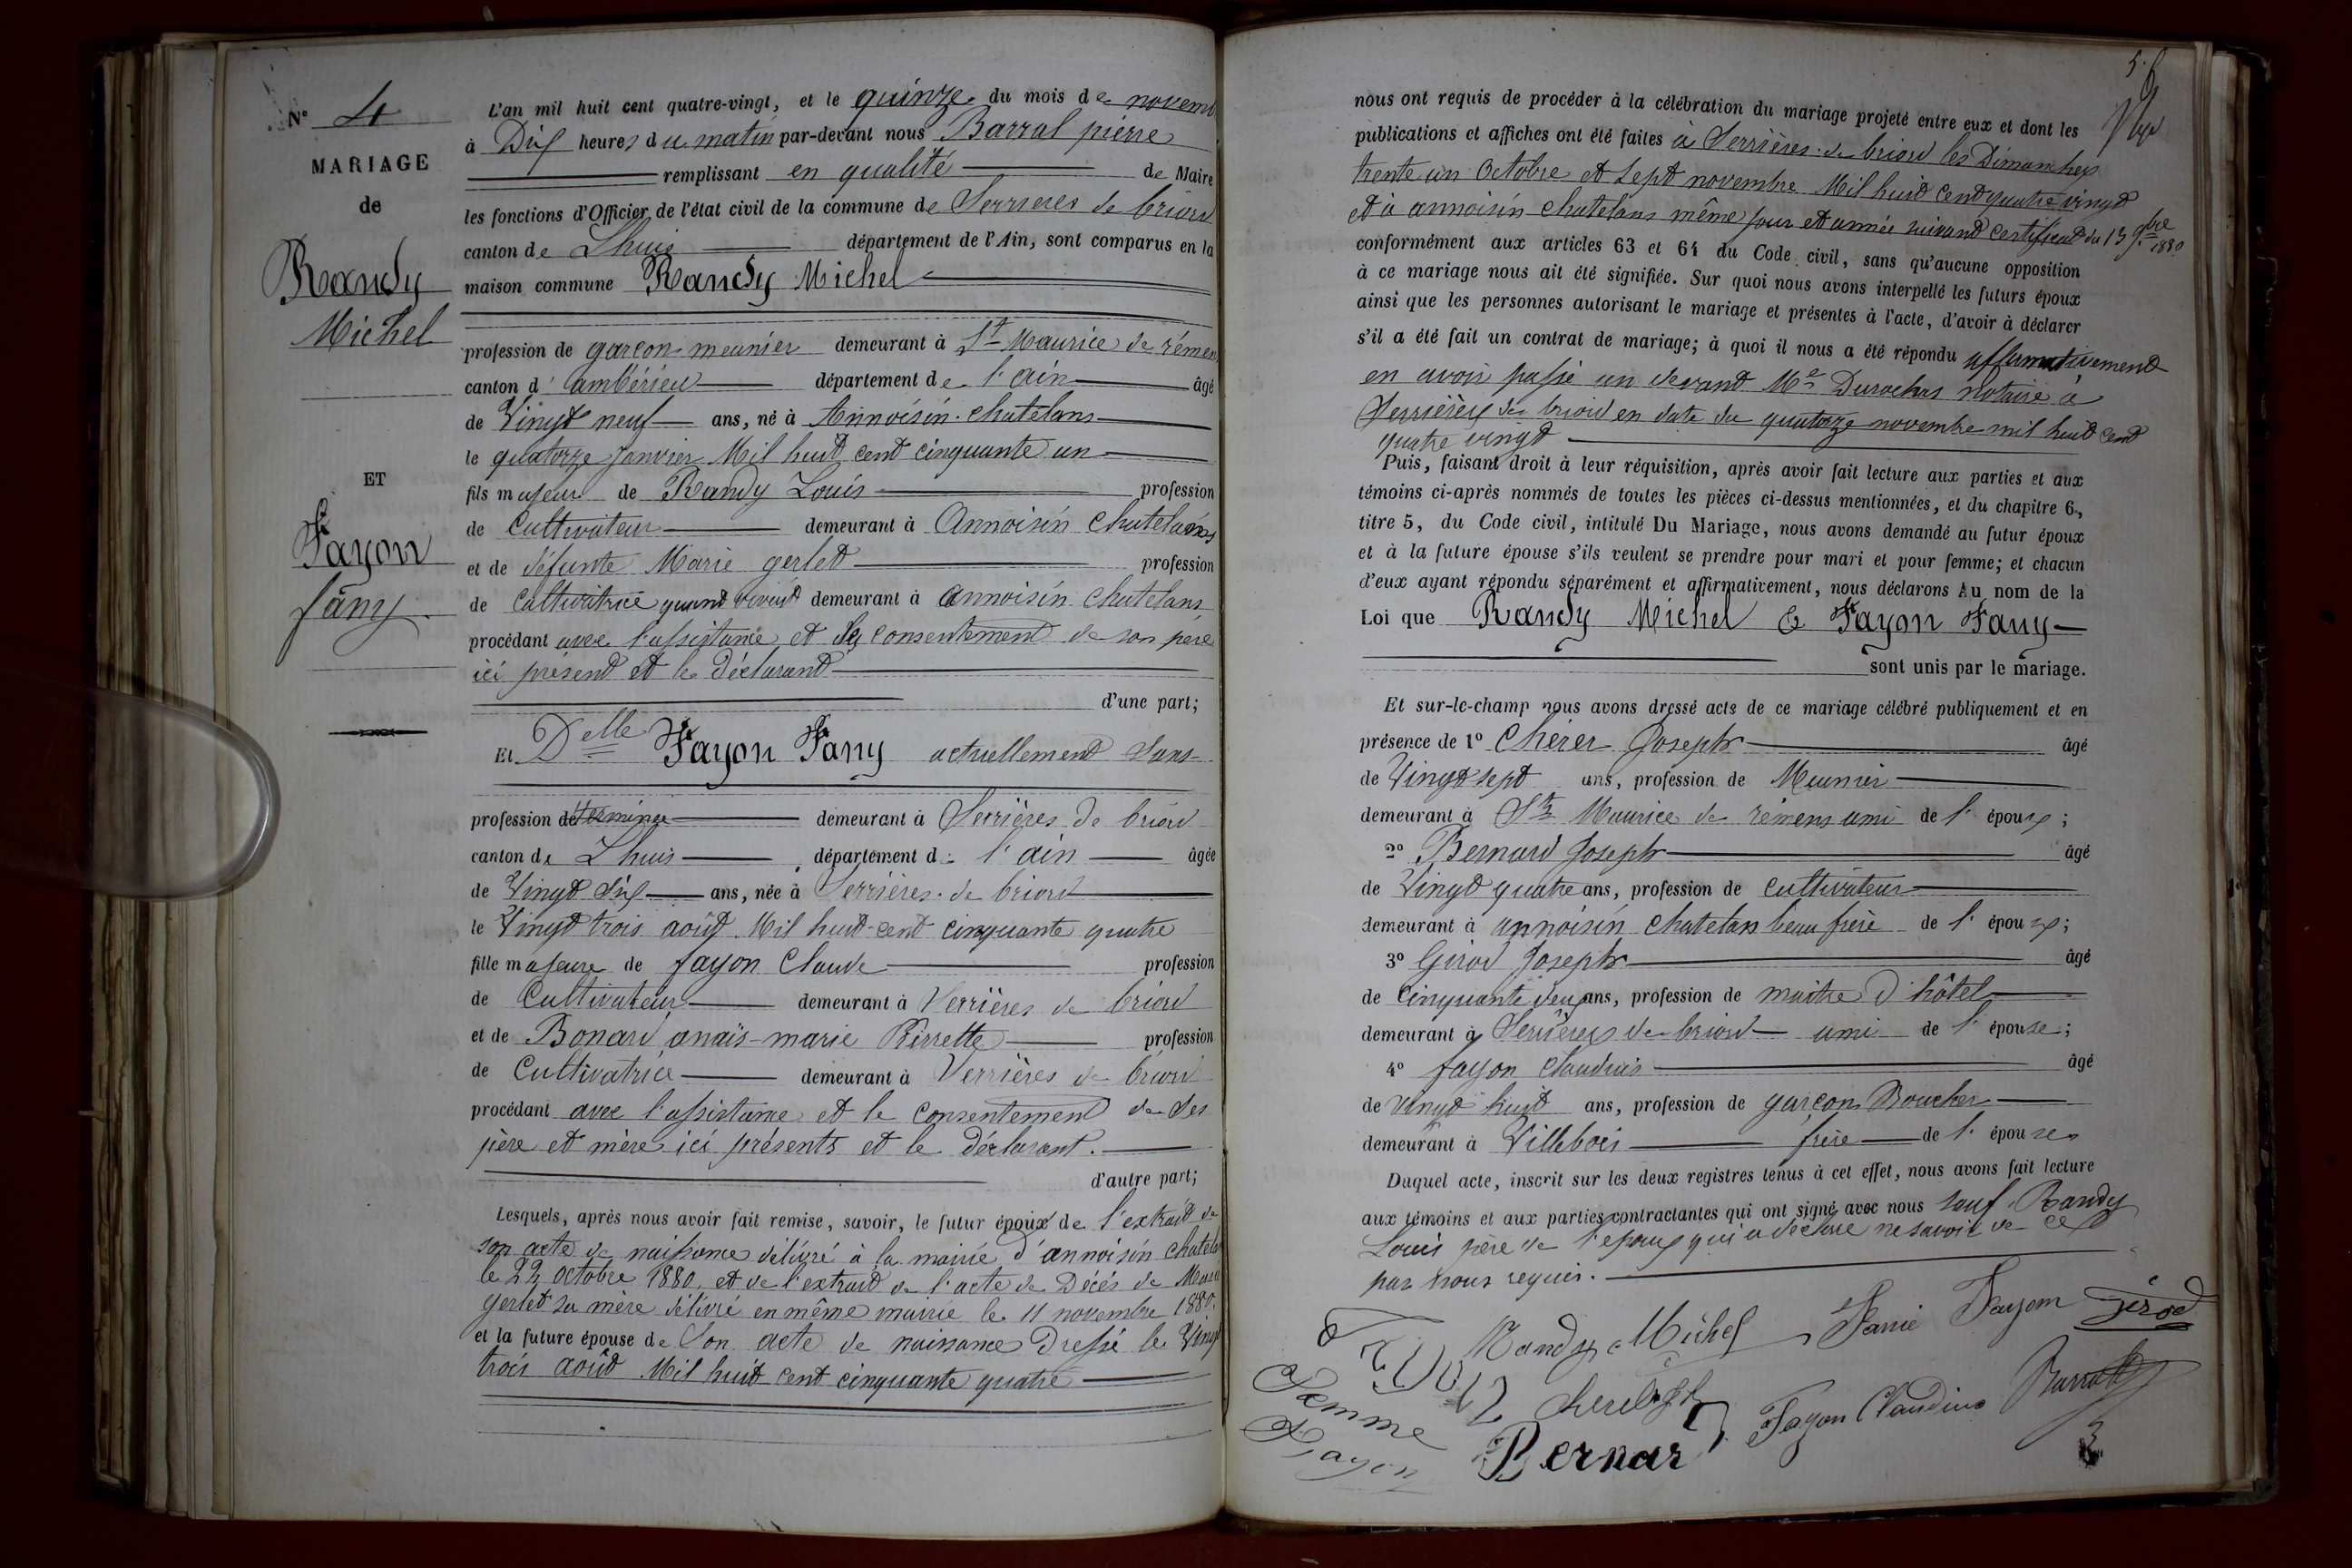 N° 4
MARIAGE
de
Randy
Michel
ET
Fayon
fany
L'an mil huit cent quatre-vingt, et le quinze du mois de novemb
à Dix heures du matin par-devant nous Barral pierre
remplissant en qualité de Maire
les fonctions d'Officier de l'état civil de la commune de Serrieres de briord
canton de Lhuis département de l'Ain, sont comparus en la
maison commune Randy Michel
profession de garçon meunier demeurant à St Maurice de rémens
canton d'ambérieu département de l'ain âgé
de Vingt neuf ans, né à Annoisin-chatelans
le quatorze Janvier Mil huit cent cinquante un
fils majeur de Randy Louis profession
de Cultivateur demeurant à Annoisin Chatelans
et de défunte Marie gerlet profession
de Cultivatrice quand vivait demeurant à annoisin Chatelans
procédant avec l'assistance et le consentement de son père
ici présent et le déclarant
d'une part;
Et Delle Fayon Fany actuellement sans
profession déterminée demeurant à Serrières de briord
canton de Lhuis département de l'ain âgée
de Vingt six ans, née à Serrières-de briord
le Vingt trois août Mil huit-cent cinquante quatre
fille majeure de fayon Claude profession
de Cultivateur demeurant à Serrières de briord
et de Bonard anaïs-marie Pierrette profession
de Cultivatrice demeurant à Serrières de briord
procédant avec l'assistance et le consentement de ses
père et mère ici présents et le déclarant.
d'autre part;
Lesquels, après nous avoir fait remise, savoir, le futur époux de l'extrait de
son acte de naissance délivré à la mairie d'annoisin chatela
le 22 octobre 1880, et de l'extrait de l'acte de Décés de Marie
gerlet sa mère délivré en même mairie le 11 novembre 1880.
et la future épouse de Son acte de naissance Dressé le Vingt
trois août Mil huit cent cinquante quatre
5.
nous ont requis de procéder à la célébration du mariage projeté entre eux et dont les
publications et affiches ont été faites à Serrières-de briord les Dimanches
trente un Octobre et Sept novembre Mil huit cent quatre vingt
et à annoisin chatelans même jour et année suivant certificat du 13 9bre 1880
conformément aux articles 63 et 64 du Code civil, sans qu'aucune opposition
à ce mariage nous ait été signifiée. Sur quoi nous avons interpellé les futurs époux
ainsi que les personnes autorisant le mariage et présentes à l'acte, d'avoir à déclarer
s'il a été fait un contrat de mariage; à quoi il nous a été répondu affirmativement
en avoir passé un devant Me Durochas notaire à
Serrières de briord en date du quatorze novembre mil huit cent
quatre vingt
Puis, faisant droit à leur réquisition, après avoir fait lecture aux parties et aux
témoins ci-après nommés de toutes les pièces ci-dessus mentionnées, et du chapitre 6,
titre 5, du Code civil, intitulé Du Mariage, nous avons demandé au futur époux
et à la future épouse s'ils veulent se prendre pour mari et pour femme; et chacun
d'eux ayant répondu séparément et affirmativement, nous déclarons Au nom de la
Loi que Randy Michel & Fayon Fany
sont unis par le mariage.
Et sur-le-champ nous avons dressé acte de ce mariage célébré publiquement et en
présence de 1° Chérer Joseph âgé
de Vingt sept ans, profession de Meunier
demeurant à St Maurice de rémens ami de l'époux;
2° Bernard Joseph âgé
de Vingt quatre ans, profession de cultivateur
demeurant à annoisin chatelans beau frère de l'époux;
3° Girod Joseph âgé
de Cinquante deux ans, profession de maitre d'hôtel
demeurant à Serrières de briord ami de l'épouse;
4° fayon Claudius âgé
de Vingt huit ans, profession de garçon Boucher
demeurant à Villebois frère de l'épouse
Duquel acte, inscrit sur les deux registres tenus à cet effet, nous avons fait lecture
aux témoins et aux parties contractantes qui ont signé avec nous sauf Randy
Louis père de l'époux qui a déclaré ne savoir de ce
par nous requis.
Randy Michel Fanie Fayon Girod
Fayon
Femme
Fayon
Bernard Fayon Claudius Barral